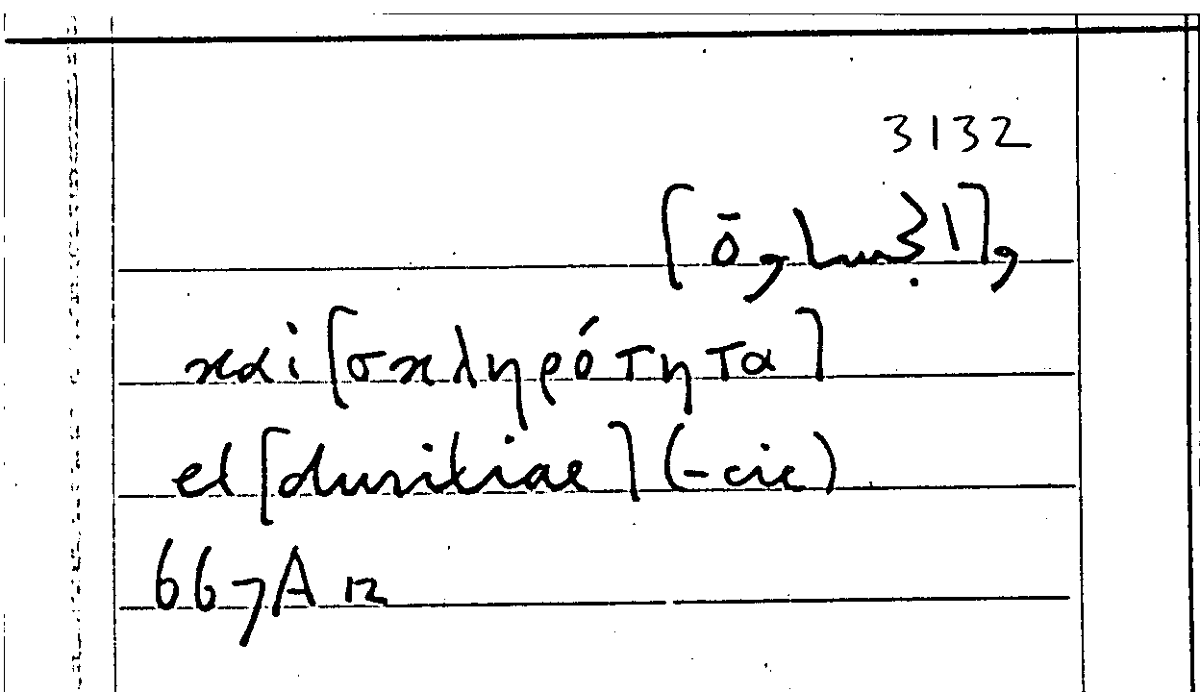 3132
καὶ [σκληρότητα]
et [duritiae] (-cie)
667A12